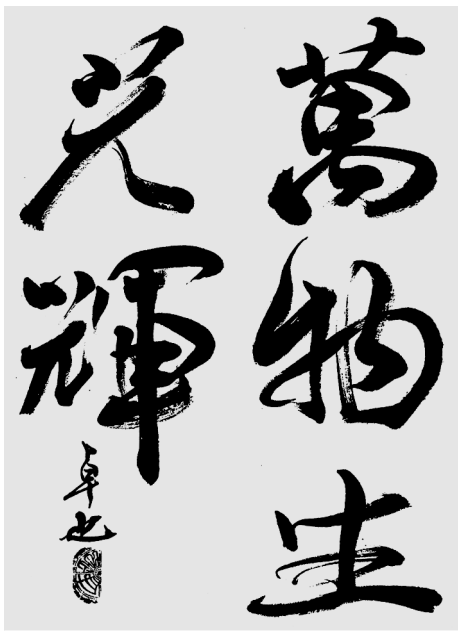 萬物生
光輝
卓也